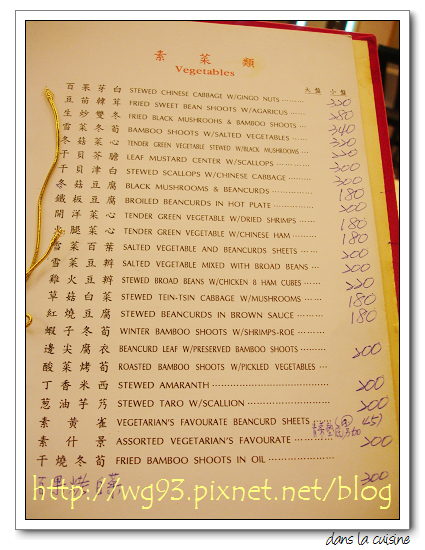 素菜類
Vegetables
大盤 小盤
百果芽白 STEWED CHINESE CABBAGE W/GINGO NUTS
豆苗韓茸 FRIED SWEET BEAN SHOOTS W/AGARICUS 320
生炒雙冬 FRIED BLACK MUSHROOHS & BAMBOO SHOOTS 280
雪菜冬荀 BAMBOO SHOOTS W/SALTED VEGETABLES 340
冬菇菜心 TENDER GREEN VEGETABLE STEWED W/BLACK MUSHROOMS 320
干貝芥膽 LEAF MUSTARD CENTER W/SCALLOPS 220
干貝津白 STEWED SCALLOPS W/CHINESE CABBAGE 300
冬菇豆腐 BLACK MUSHROOMS & BEANCURDS 300
鐵板豆腐 BROILED BEANCURDS IN HOT PLATE 180
開洋菜心 TENDER GREEN VEGETABLE W/DRIED SHRIMPS 200
火腿菜心 TENDER GREEN VEGETABLE W/CHINESE HAM 180
雪菜百葉 SALTED VEGETABLE AND BEANCURDS SHEETS 180
雪菜豆瓣 SALTED VEGETABLE MIXED WITH BROAD BEANS 200
雞火豆瓣 STEWED BROAD BEANS W/CHICKEN 8 HAM CUBES 200
草菇白菜 STEWED TEIN-TSIN CABBAGE W/MUSHROOMS 220
紅燒豆腐 STEWED BEANCURDS IN BROWN SAUCE 180
蝦子冬荀 WINTER BAMBOO SHOOTS W/SHRIMPS-ROE 180
邊尖腐衣 BEANCURD LEAF W/PRESERVED BAMBOO SHOOTS 200
酸菜烤荀 ROASTED BAMBOO SHOOTS W/PICKLED VEGETABLES
丁香米西 STEWED AMARANTH 200
葱油芋艿 STEWED TARO W/SCALLION 200
素黃雀 VEGETARIAN'S FAVOURATE BEANCURD SHEETS 45)
素什景 ASSORTED VEGETARIAN'S FAVOURATE 200
干燒冬荀 FRIED BAMBOO SHOOTS IN OIL
300
http://wg93.pixnet.net/blog
dans la cuisine